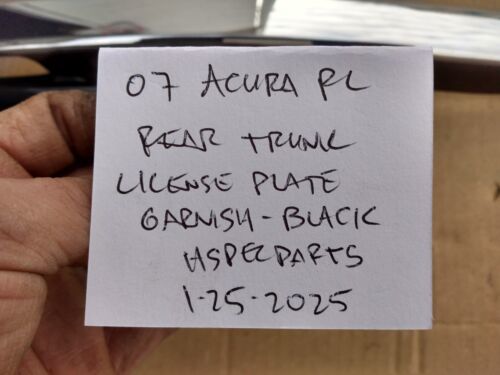 07 ACURA RL
REAR TRUNK
LICENSE PLATE
GARNISH-BLACK
HSPECPARTS
1-25-2025